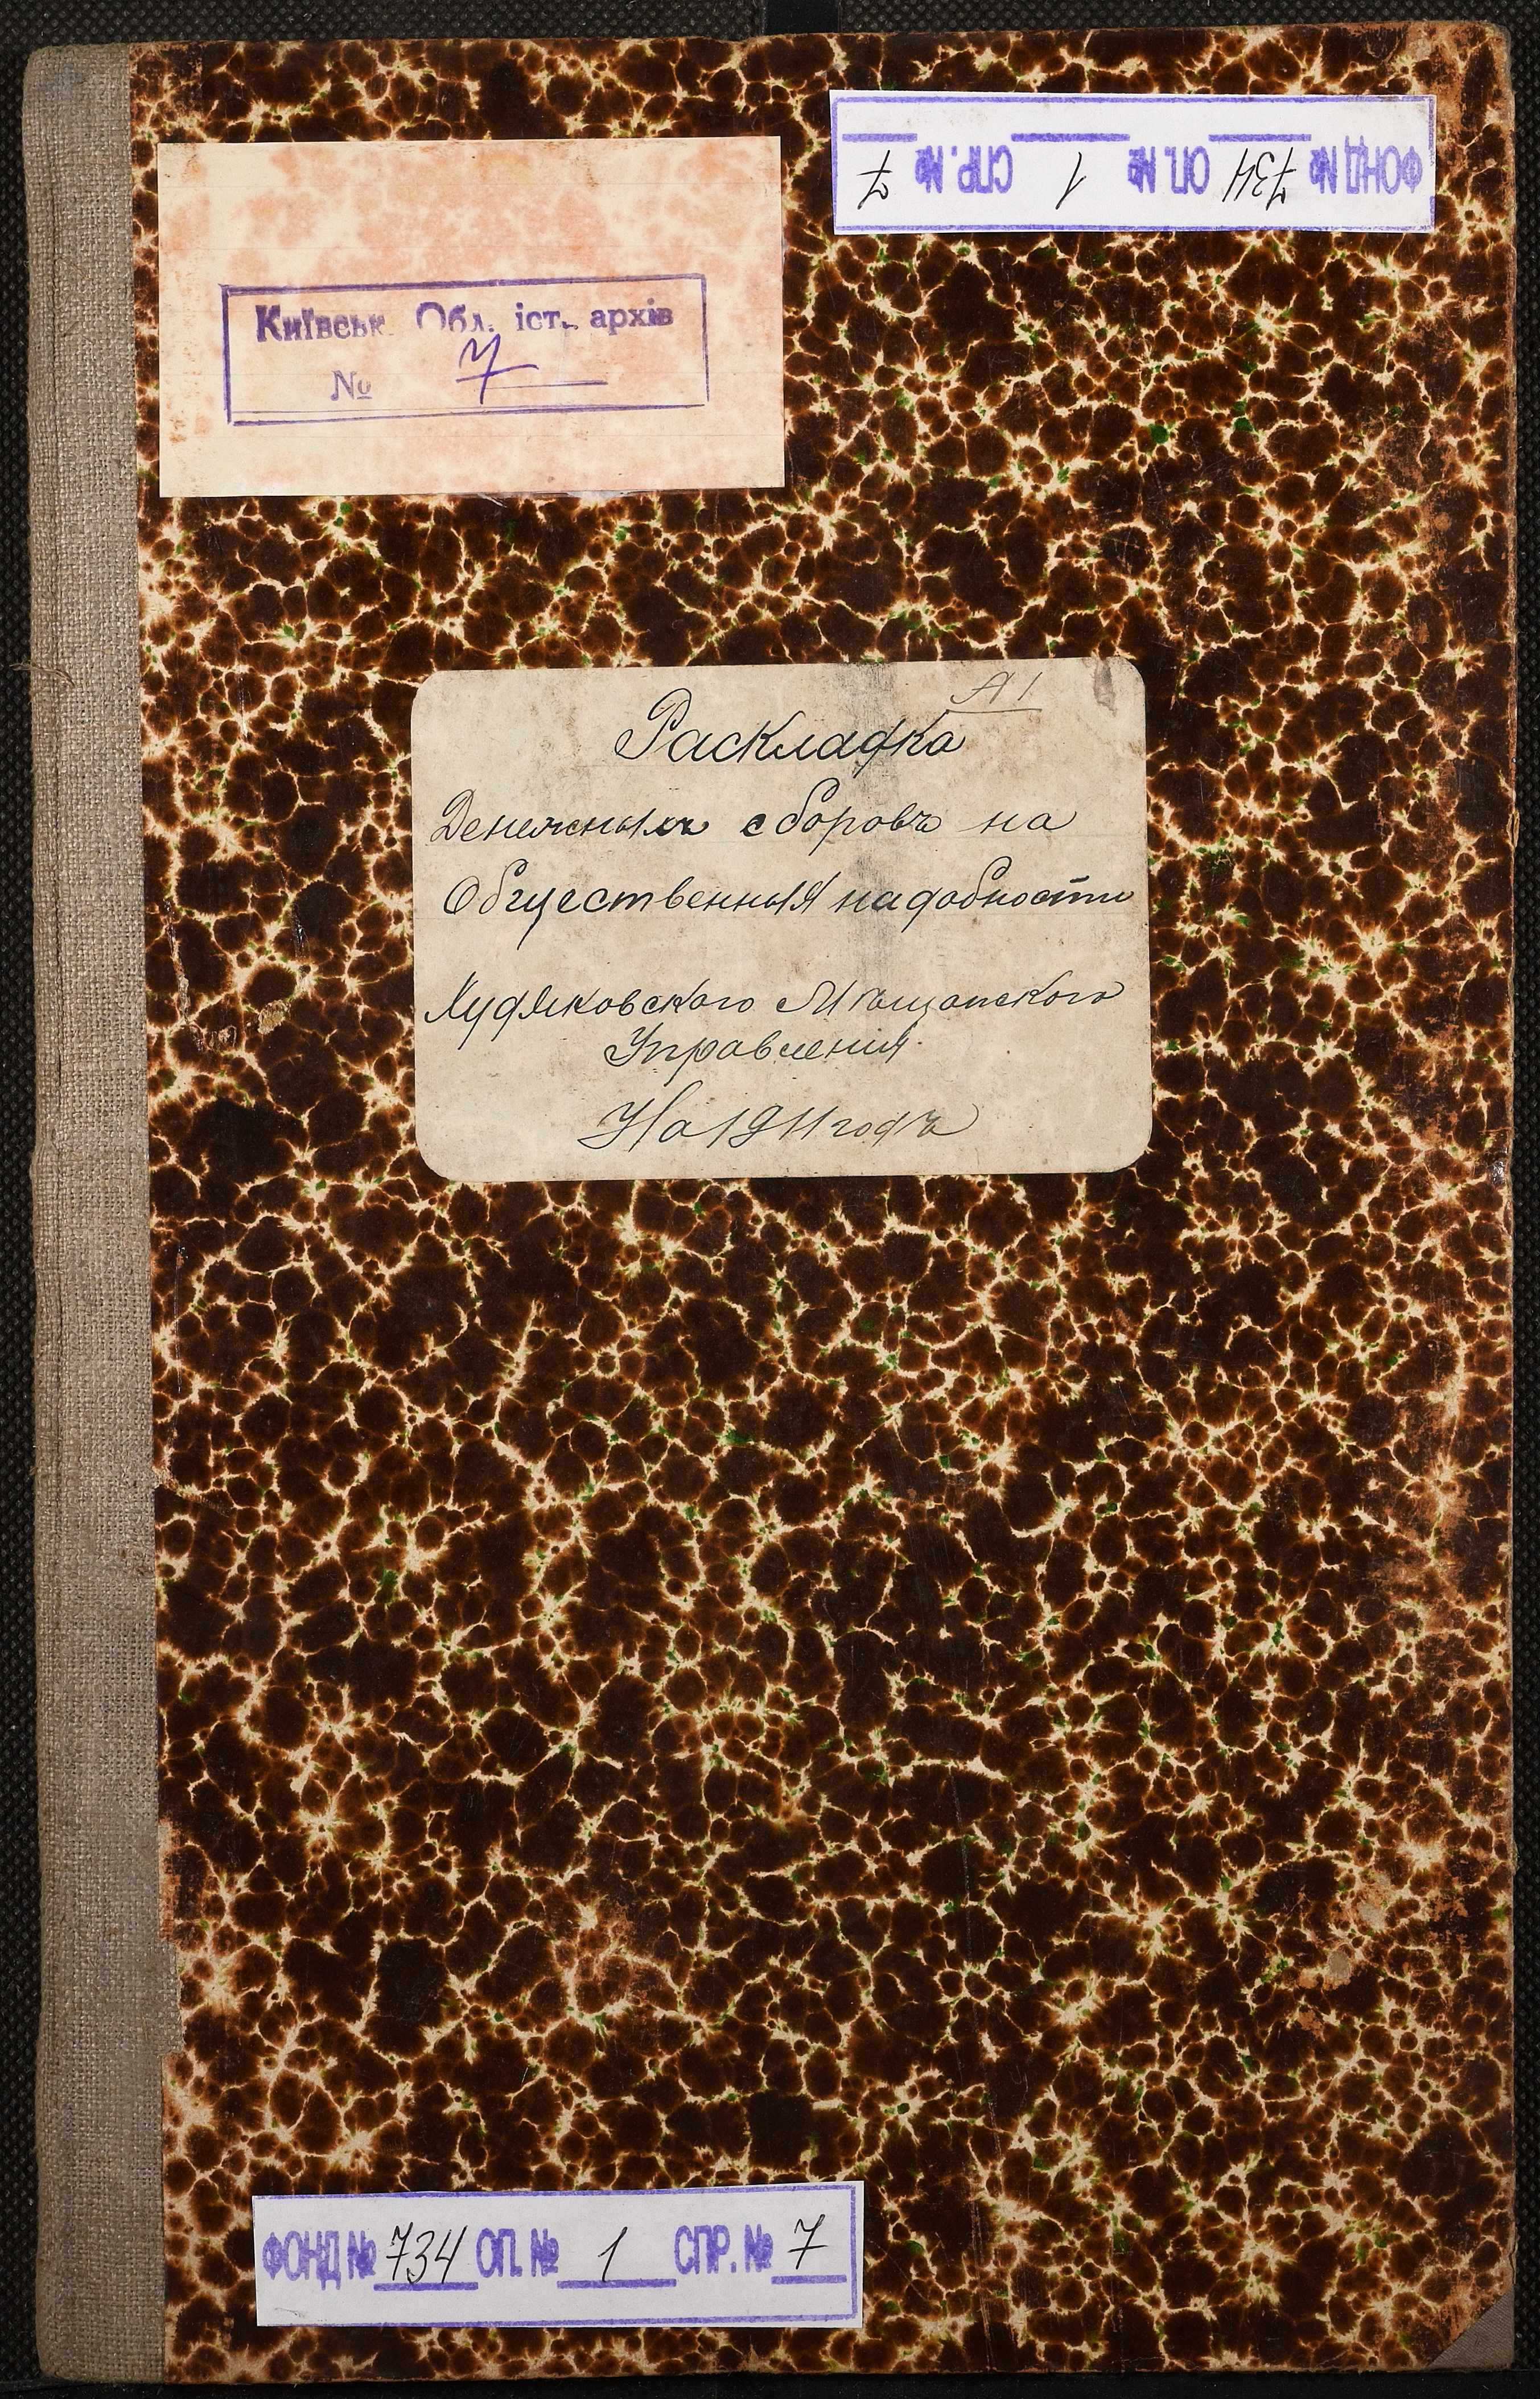 ФОНД № 734 ОП. № 1 СПР. № 7
Київськ. Обл. іст. архів
№ 7
Раскладка
Денежныхъ сборовъ на
Общественныя надобности
Худяковского Мѣщанского
Управления
На 1911 годъ
ФОНД № 734 ОП. № 1 СПР. № 7